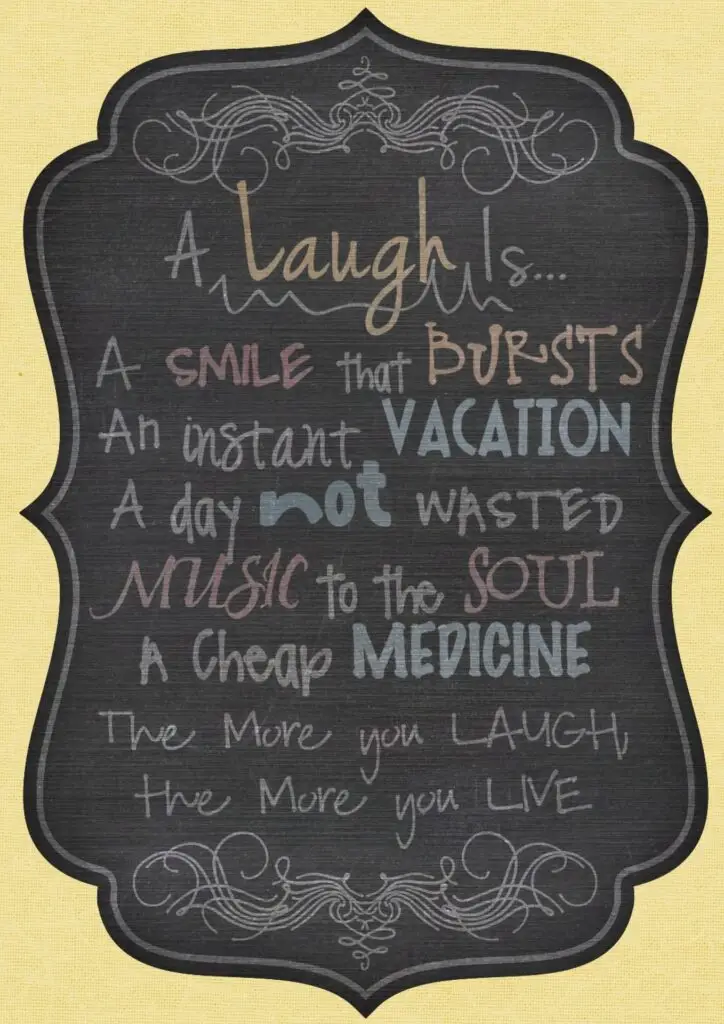 A Laugh Is...
A SMILE that BURSTS
An instant VACATION
A day not WASTED
MUSIC to the SOUL
A Cheap MEDICINE
The More you LAUGH,
the More you LIVE